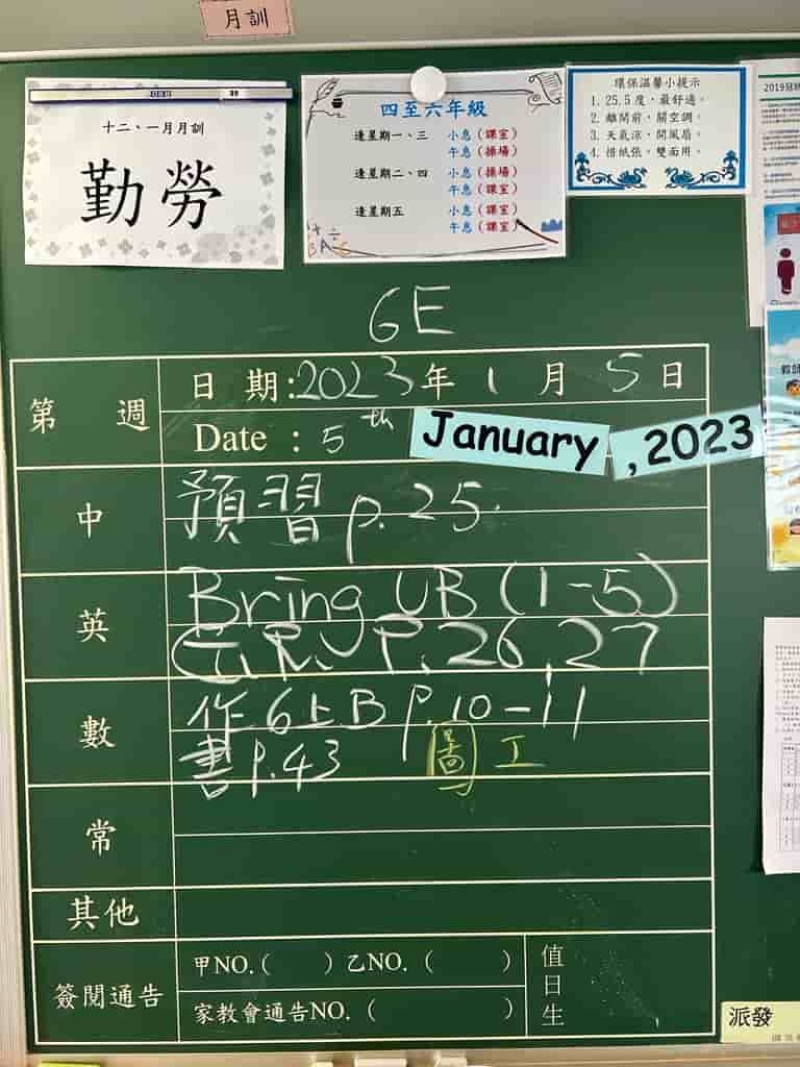 月訓
十二、一月月訓
勤勞
四至六年級
逢星期一、三 小息（課室）
午息（操場）
逢星期二、四 小息（操場）
午息（課室）
逢星期五 小息（課室）
午息（課室）
環保溫馨小提示
1. 25.5度，最舒適。
2. 離開前，關空調。
3. 天氣涼，開風扇。
4. 惜紙張，雙面用。
6E
第 週
日 期:2023年 1 月 5日
Date : 5th January, 2023
中
預習 p. 25.
英
Bring UB (1-5)
G.R. P. 26, 27
數
作6上B p.10-11
書p.43 圖 工
常
其他
簽閱通告
甲NO.( ) 乙NO. ( )
家教會通告NO. ( )
值日生
派發